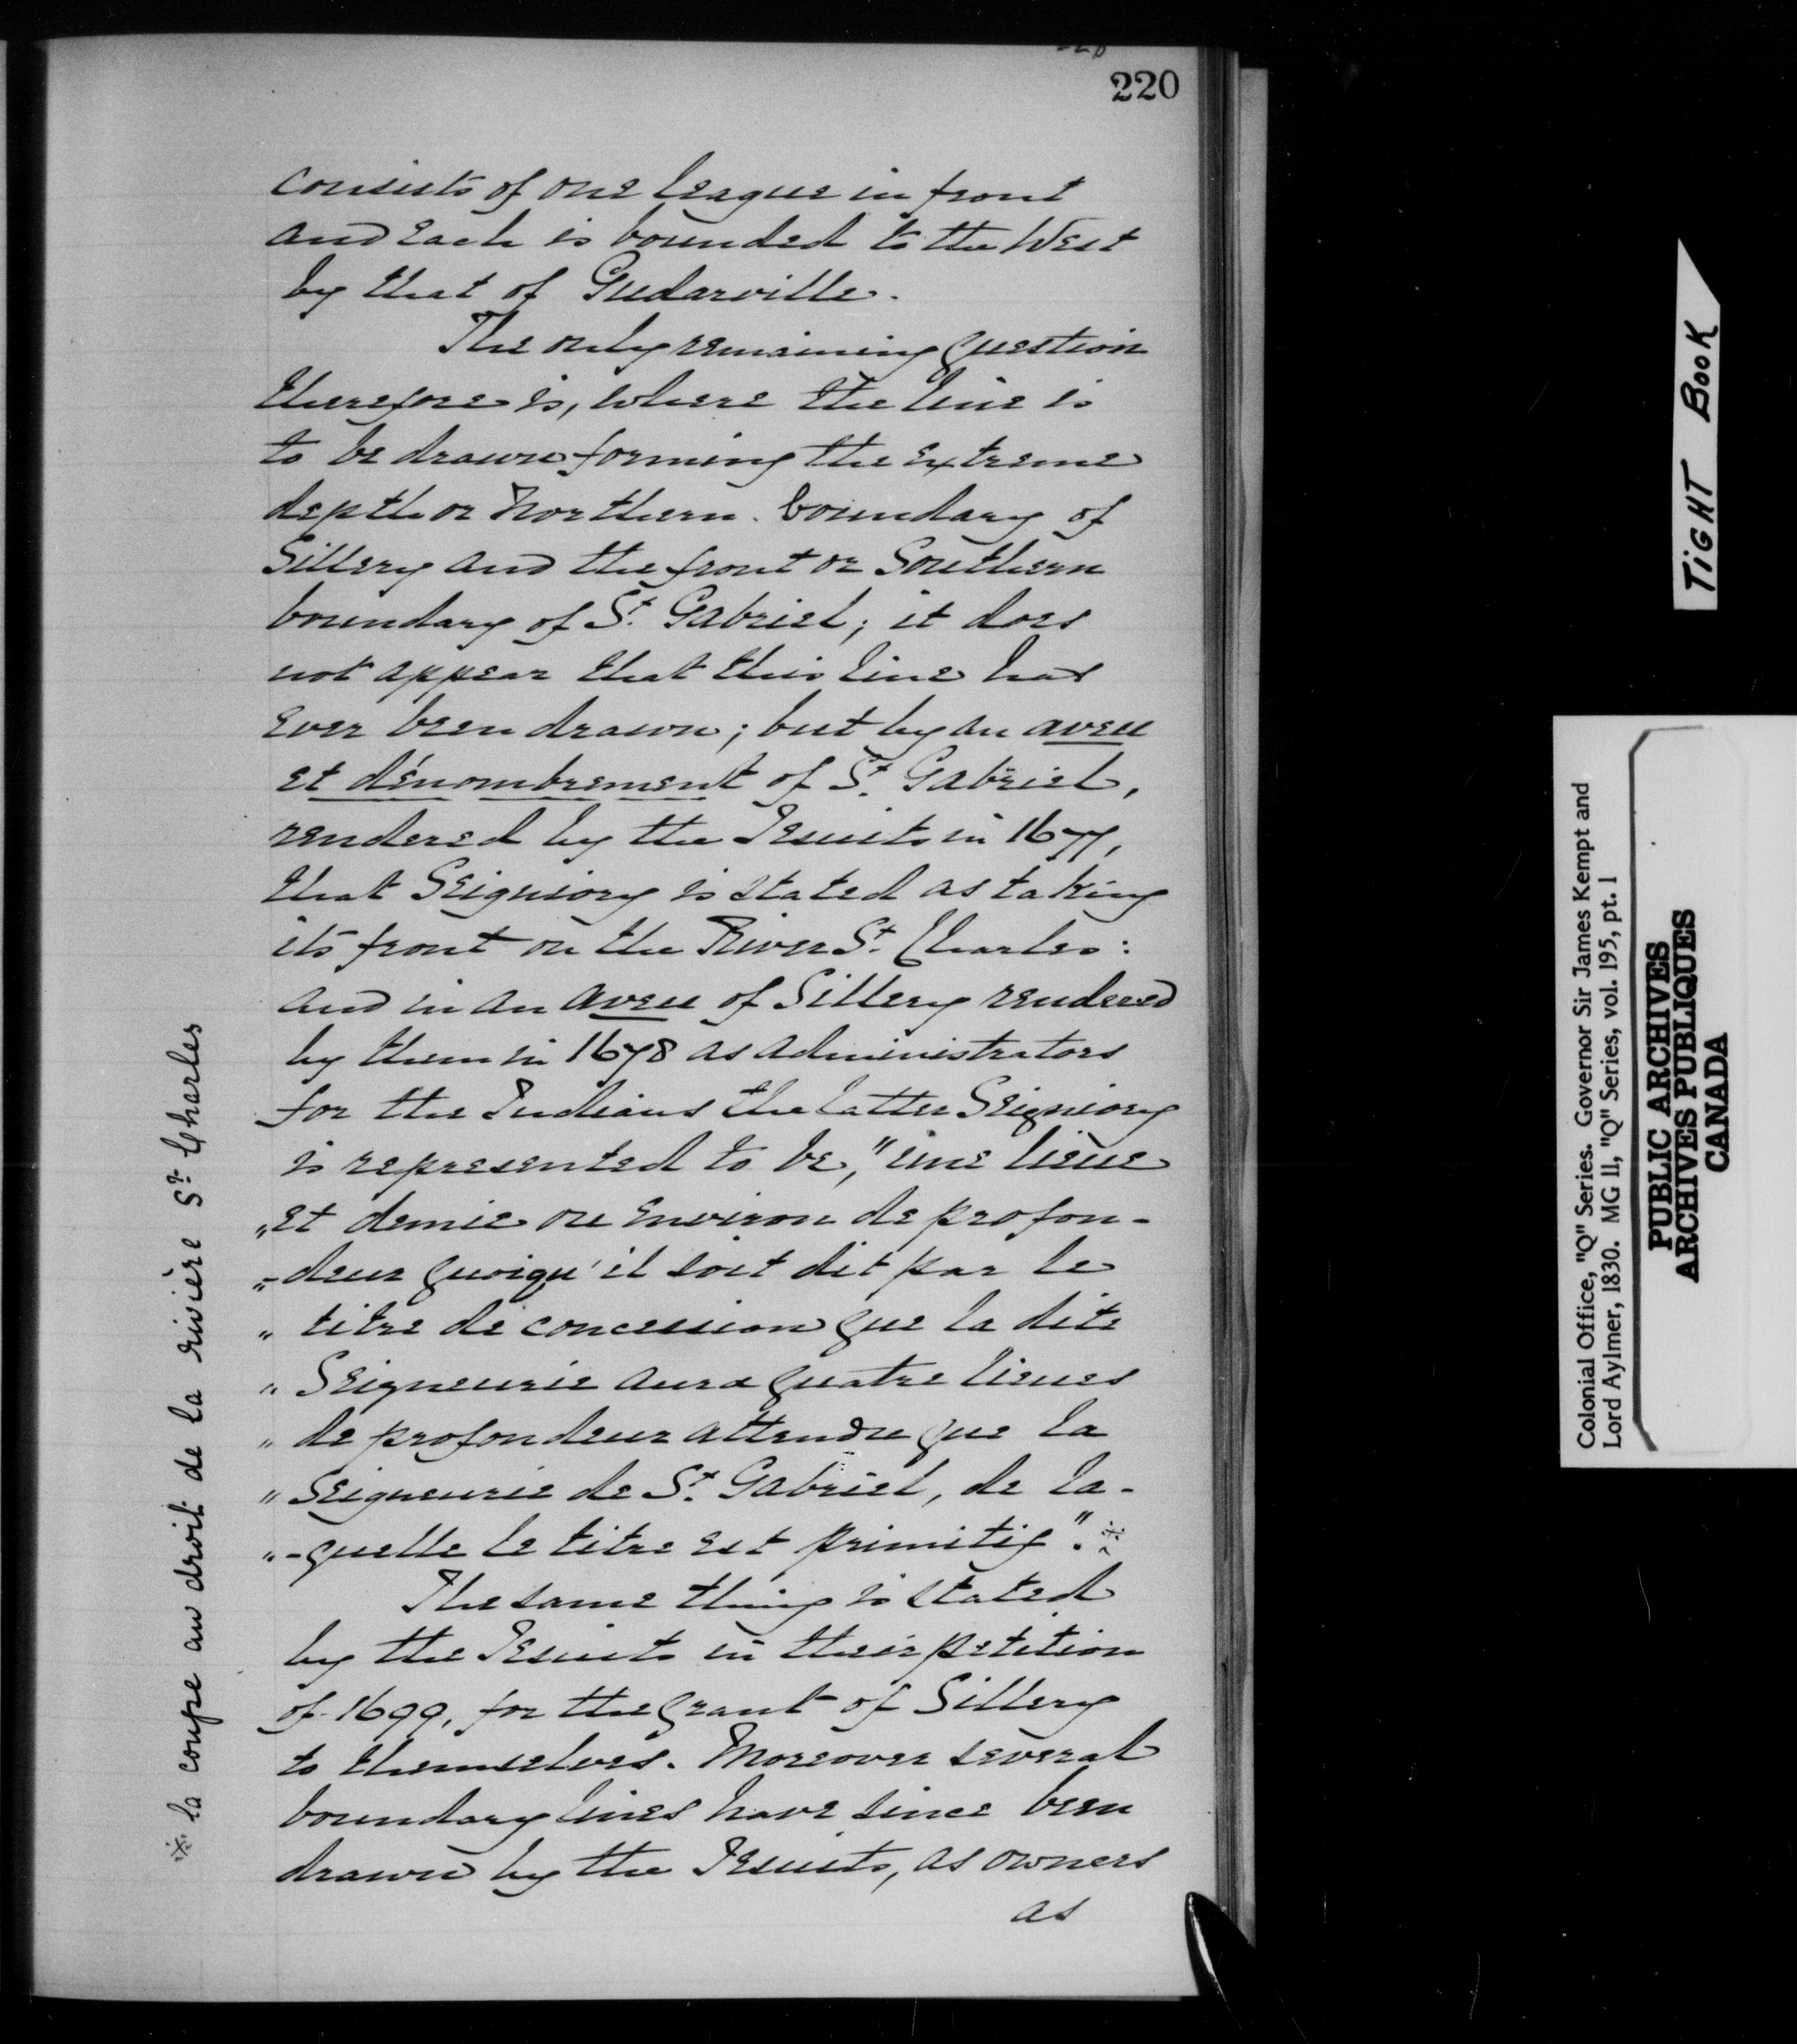 220
consists of one league in front
and each is bounded to the West
by that of Gudarville.
The only remaining question
therefore is, where the line is
to be drawn forming the extreme
depth or Northern boundary of
Sillery and the front or Southern
boundary of St. Gabriel; it does
not appear that this line has
ever been drawn; but by an aveu
et dénombrement of St. Gabriel,
rendered by the Jesuits in 1677,
that Seigniory is stated as taking
its front on the River St. Charles:
and in an aveu of Sillery rendered
by them in 1678 as administrators
for the Indians the latter Seigniory
is represented to be, "une lieue
" et demie ou environ de profon-
"-deur quoiqu'il soit dit par le
" titre de concession que la dite
" Seigneurie aura quatre lieues
" de profondeur attendu que la
" Seigneurie de St. Gabriel, de la-
"-quelle le titre est primitif". ※
The same thing is stated
by the Jesuits in their petition
of 1699, for the grant of Sillery
to themselves. Moreover several
boundary lines have since been
drawn by the Jesuits, as owners
as
※ la coupe au droit de la rivière St. Charles
TIGHT BOOK
Colonial Office, "Q" Series. Governor Sir James Kempt and
Lord Aylmer, 1830. MG 11, "Q" Series, vol. 195, pt. 1
PUBLIC ARCHIVES
ARCHIVES PUBLIQUES
CANADA